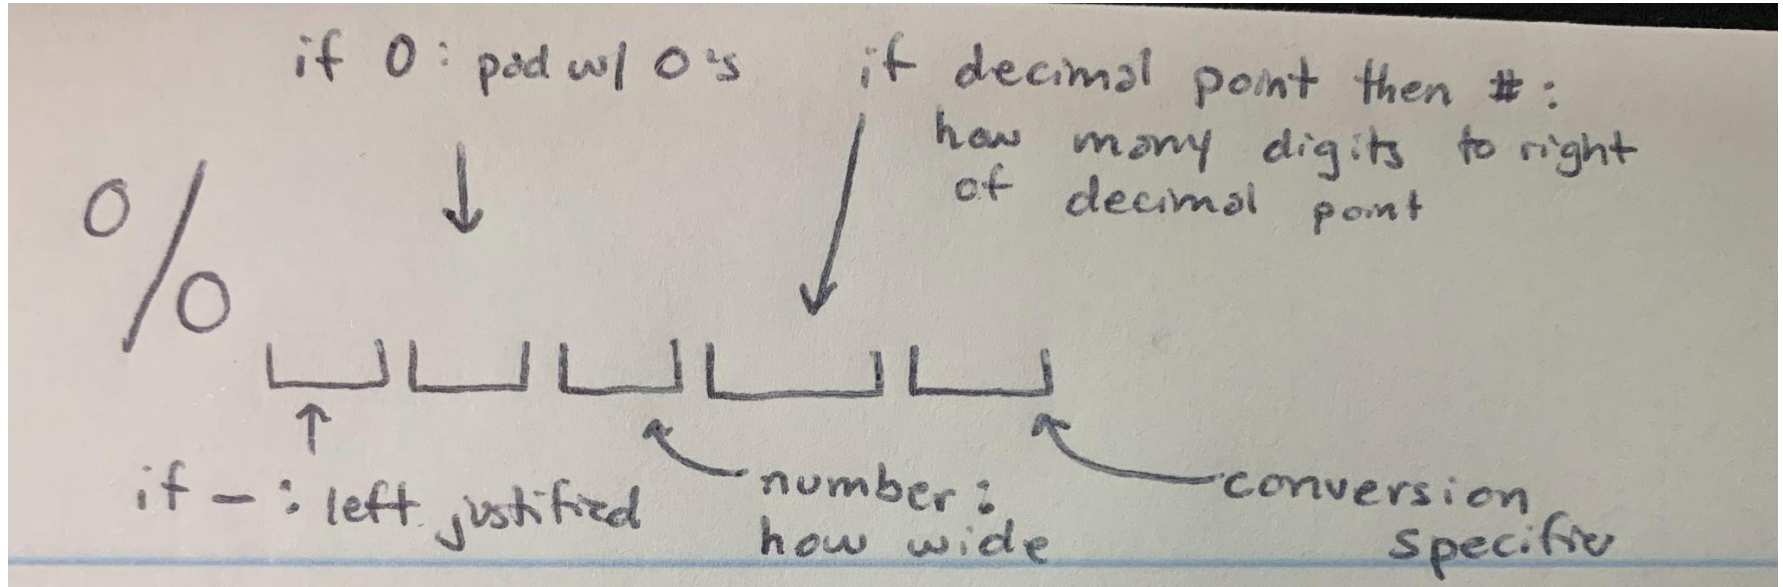 if 0: pad w/ 0's
if decimal point then #:
how many digits to right
of decimal point
%
if -: left justified
number:
how wide
conversion
specifier